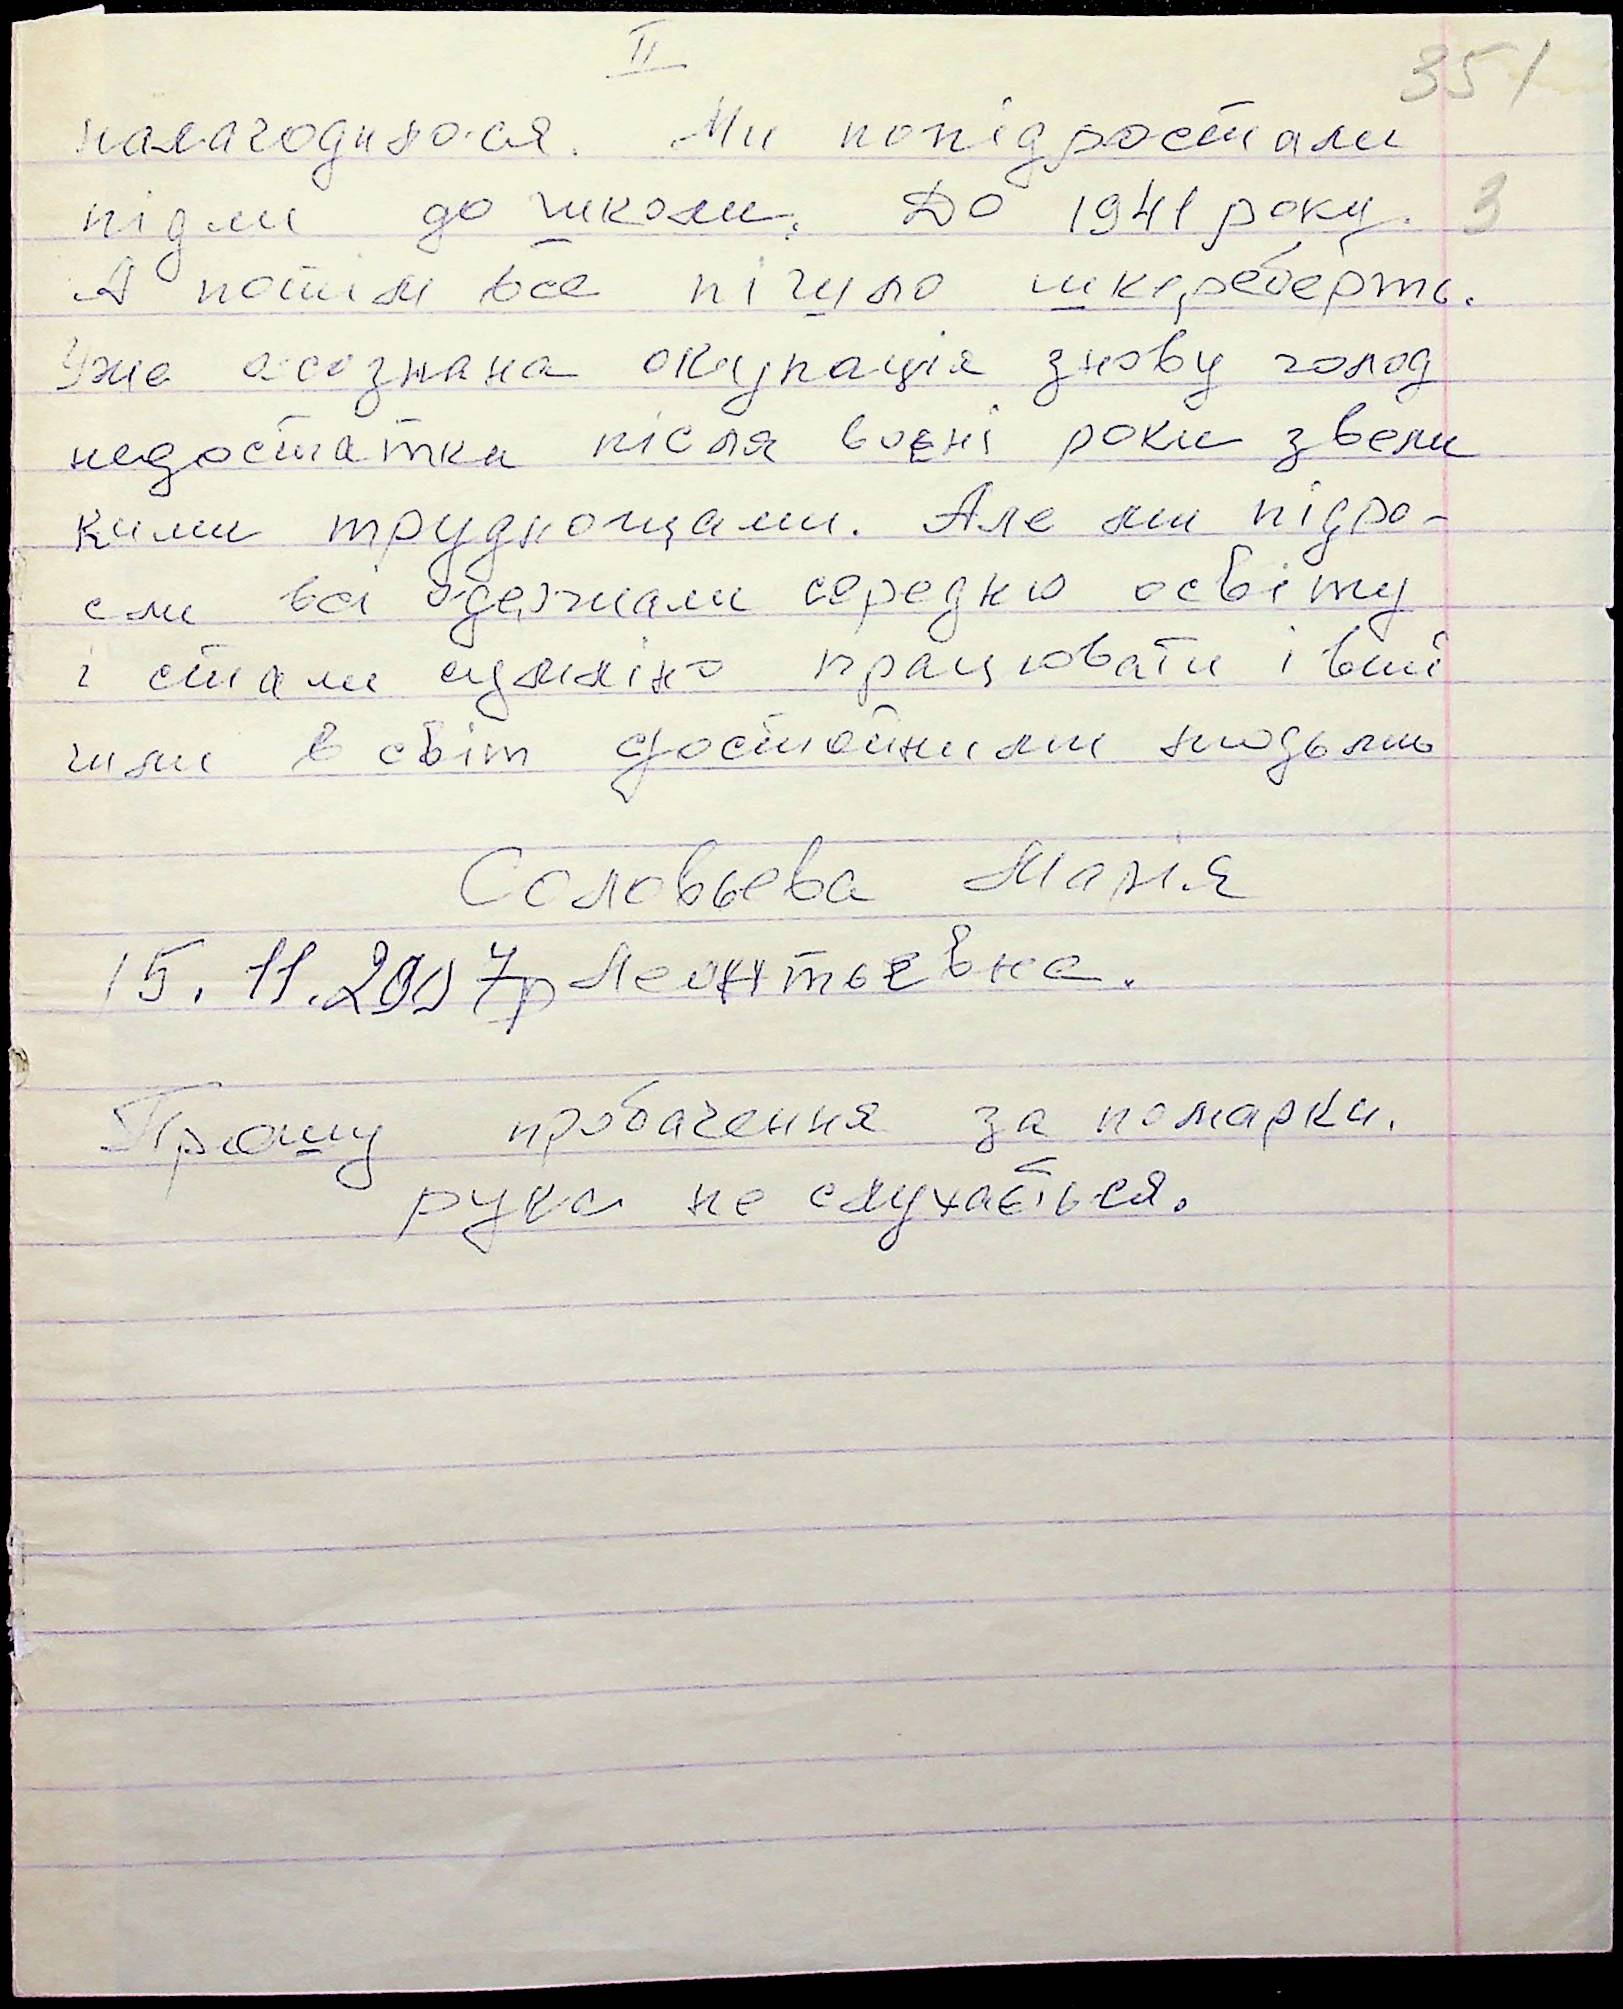 II
351
налагодилося. Ми попідростали
підли до школи. До 1941 року.
3
А потім все пішло шкереберть.
Уже осознана окупація знову голод
недостатки після воєні роки звели
кими труднощами. Але ми підро-
сли всі одержали середню освіту
і стали сумліно працювати і виі
шли в світ достойними людьми
Соловьева Марія
15.11.2007р Леонтьевна.
Прошу пробачення за помарки.
рука не слухається.